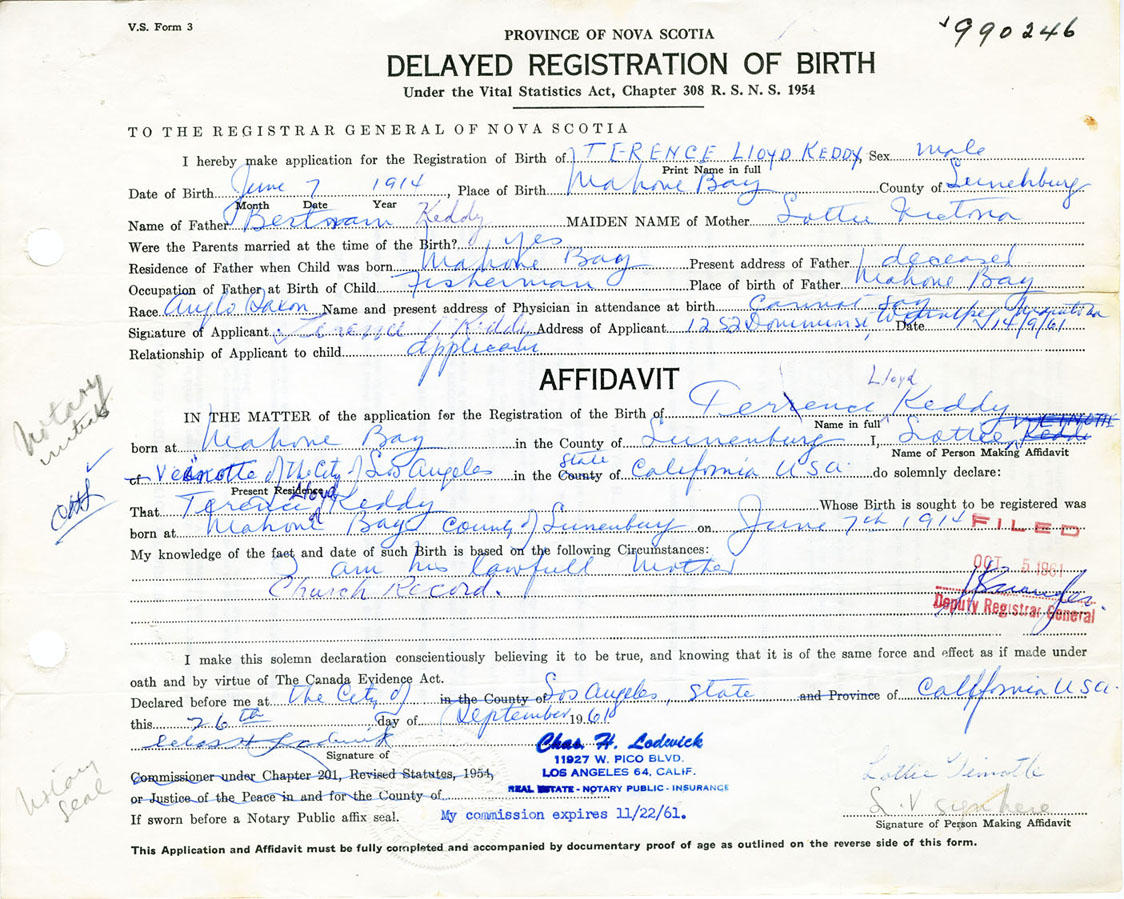 V.S. Form 3
990246
PROVINCE OF NOVA SCOTIA
DELAYED REGISTRATION OF BIRTH
Under the Vital Statistics Act, Chapter 308 R. S. N. S. 1954
TO THE REGISTRAR GENERAL OF NOVA SCOTIA
I hereby make application for the Registration of Birth of TERENCE LLOYD KEDDY, Sex male
Print Name in full
Date of Birth June 7 1914, Place of Birth Mahone Bay County of Lunenburg
Month Date Year
Name of Father Bertram Keddy MAIDEN NAME of Mother Lottie Victoria
Were the Parents married at the time of the Birth? yes
Residence of Father when Child was born Mahone Bay Present address of Father deceased
Occupation of Father at Birth of Child Fisherman Place of birth of Father Mahone Bay
Race Anglo Saxon Name and present address of Physician in attendance at birth Cannot say
Signature of Applicant Terence Keddy Address of Applicant 1252 Dominion St Winnipeg Manitoba Date 14/9/61
Relationship of Applicant to child applicant
AFFIDAVIT
Lloyd
IN THE MATTER of the application for the Registration of the Birth of Terrence Keddy
Name in full
born at Mahone Bay in the County of Lunenburg I, Lottie Keddy VEINOTTE
Name of Person Making Affidavit
of Veinotte of the City of Los Angeles in the County of State California USA. do solemnly declare:
Present Residence
That Terence Lloyd Keddy Whose Birth is sought to be registered was
born at Mahone Bay County of Lunenburg on June 7th 1914
FILED
My knowledge of the fact and date of such Birth is based on the following Circumstances:
I am his lawfull Mother
OCT 5 1961
Church Record.
Deputy Registrar General
Notary initials
oath
I make this solemn declaration conscientiously believing it to be true, and knowing that it is of the same force and effect as if made under
oath and by virtue of The Canada Evidence Act.
Declared before me at the City of in the County of Los Angeles, State and Province of California USA.
this 26th day of September 1961
Signature of
Chas. H. Lodwick
11927 W. PICO BLVD.
LOS ANGELES 64, CALIF.
REAL ESTATE - NOTARY PUBLIC - INSURANCE
Commissioner under Chapter 201, Revised Statutes, 1954,
or Justice of the Peace in and for the County of
If sworn before a Notary Public affix seal. My commission expires 11/22/61.
Notary seal
Lottie
L.V sign here
Signature of Person Making Affidavit
This Application and Affidavit must be fully completed and accompanied by documentary proof of age as outlined on the reverse side of this form.